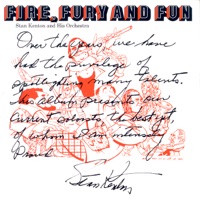 FIRE, FURY AND FUN
Stan Kenton and His Orchestra
Over the years, we have
had the privilege of
spotlighting many talents.
This album presents our
current soloists the best yet,
of whom I am intensely
Proud
Stan Kenton